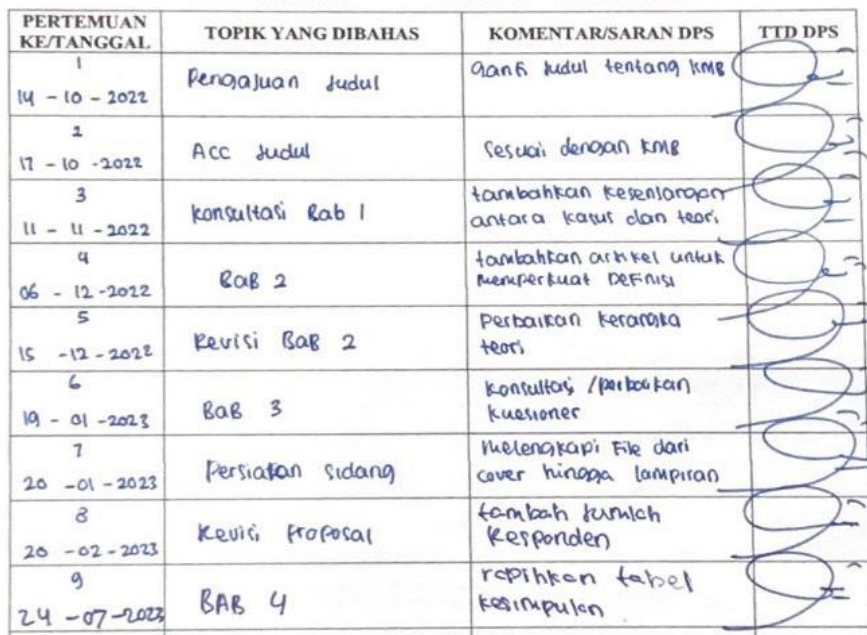 PERTEMUAN KE/TANGGAL TOPIK YANG DIBAHAS KOMENTAR/SARAN DPS TTD DPS
1
14 - 10 - 2022 Pengajuan Judul ganti Judul tentang KMB
2
17 - 10 - 2022 Acc Judul Sesuai dengan KMB
3
11 - 11 - 2022 Konsultasi Bab 1 tambahkan Kesenjangan
antara kasus dan teori
4
06 - 12 - 2022 BaB 2 tambahkan artikel untuk
memperkuat DEFINISI
5
15 - 12 - 2022 Revisi BaB 2 Perbaikan kerangka
teori
6
19 - 01 - 2023 BaB 3 Konsultasi / perbaikan
Kuesioner
7
20 - 01 - 2023 Persiapan sidang Melengkapi File dari
cover hingga lampiran
8
20 - 02 - 2023 Revisi Proposal tambah Jumlah
Responden
9
24 - 07 - 2023 BAB 4 rapihkan tabel
kesimpulan